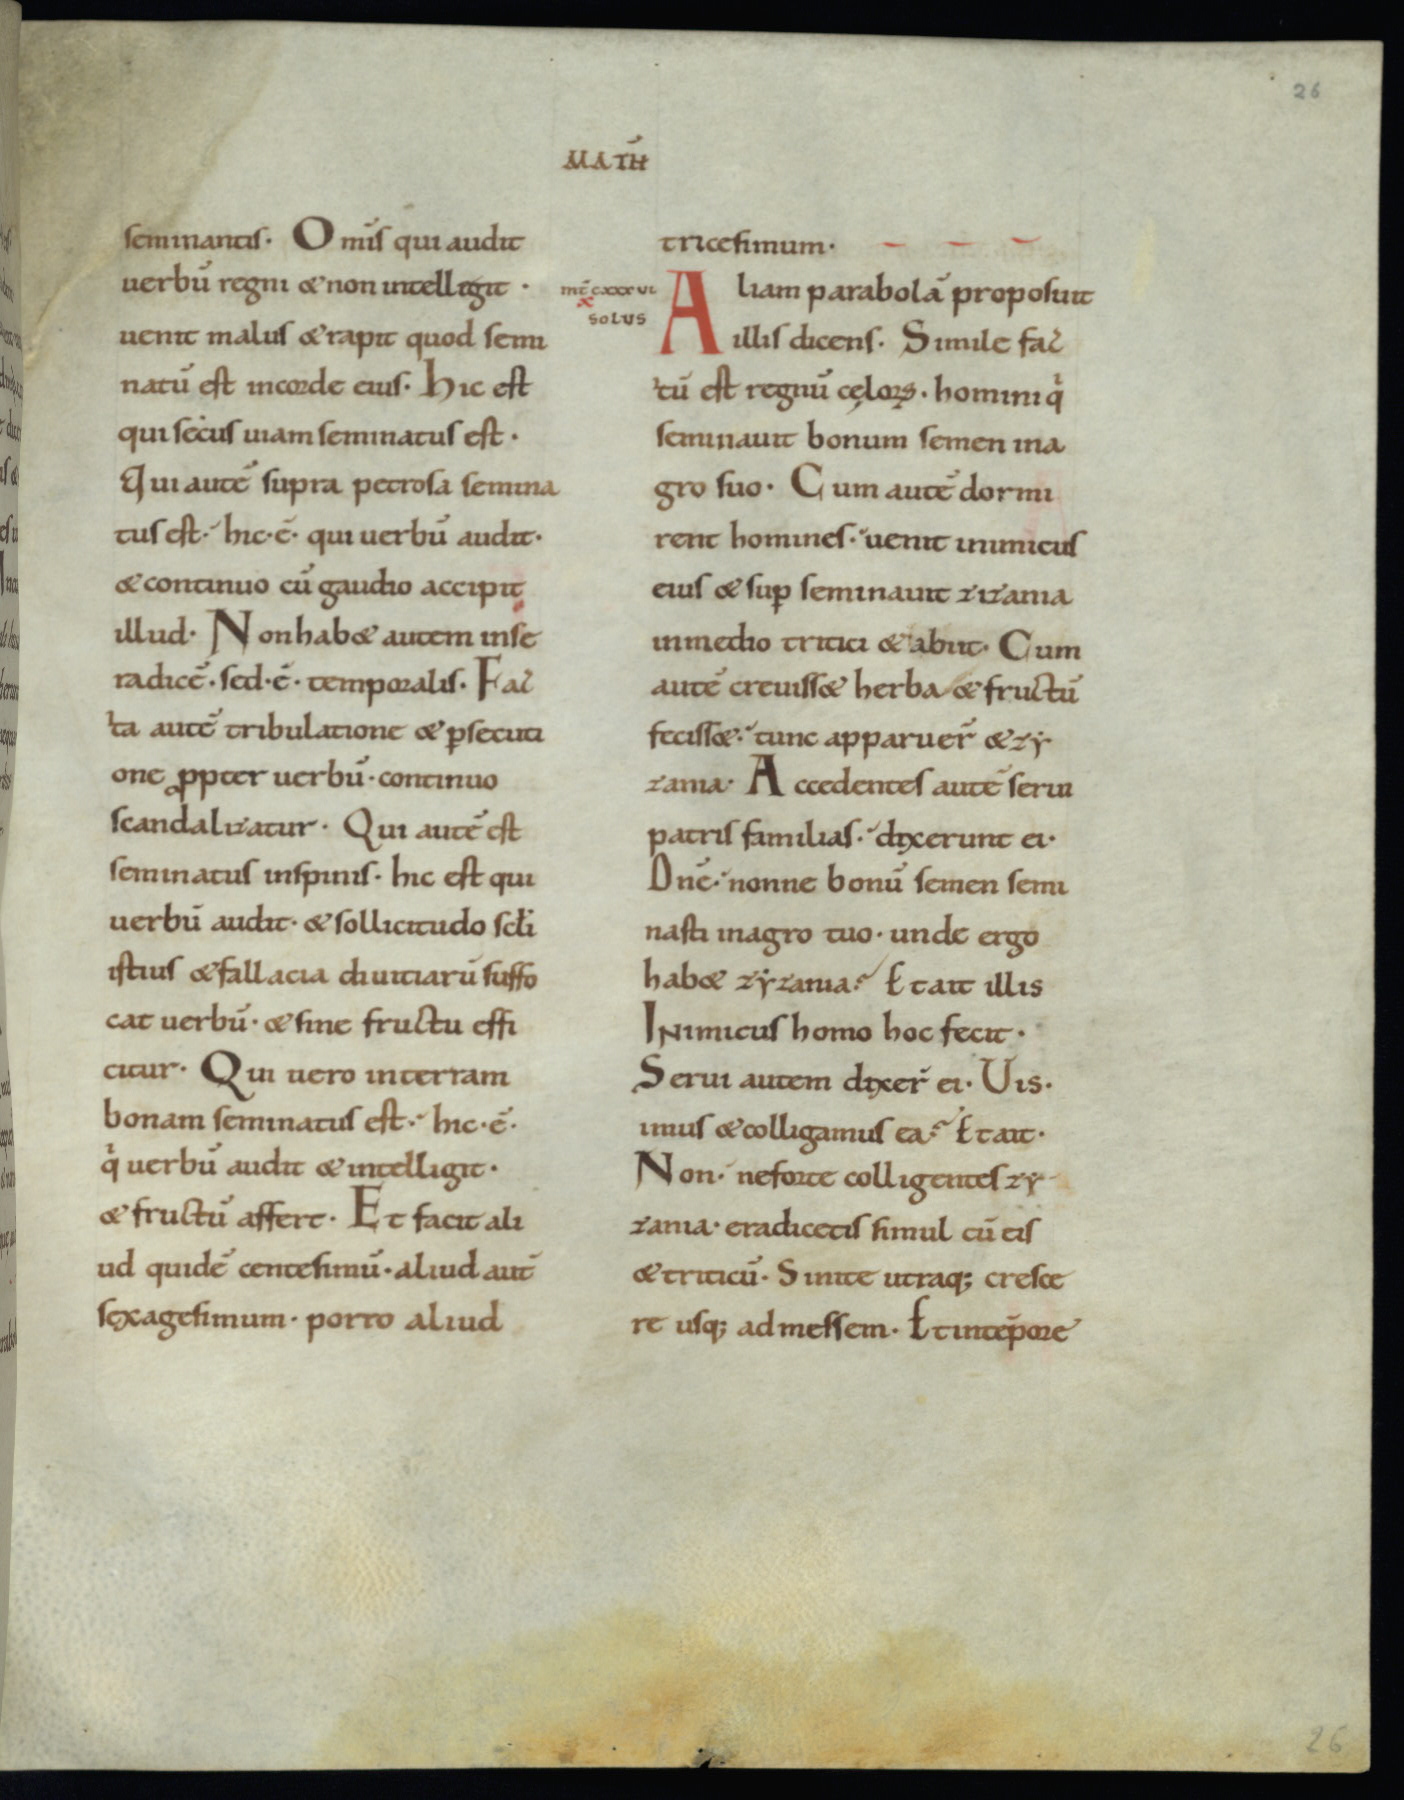 26
MATH̄
seminantis· Omīs qui audit
uerbū regni & non intelligit ·
uenit malus & rapit quod semi
natū est incorde eius· hic est
qui secus uiam seminatus est ·
Qui autē supra petrosa semina
tus est·´ hic·ē· qui uerbū audit·
& continuo cū gaudio accipit
illud· Non hab& autem inse
radicē· sed·ē· temporalis· Fac
ta autē tribulatione & ꝑsecuti
one ꝓpter uerbū· continuo
scandalizatur· Qui autē est
seminatus inspinis· hic est qui
uerbū audit· & sollicitudo scłi
istius & fallacia diuitiarū suffo
cat uerbū· & sine fructu effi
citur· Qui uero interram
bonam seminatus est·´ hic·ē·
qͥ uerbū audit & intelligit·
& fructū affert· Et facit ali
ud quidē centesimū· aliud aut̄
sexagesimum· porro aliud
tricesimum·
mt̄ cxxxvi
x
SOLUS
Aliam parabolā proposuit
illis dicens· Simile fac
tū est regnū cęloꝝ· homini qͥ
seminauit bonum semen ina
gro suo· Cum autē dormi
rent homines·´ uenit inimicus
eius & suꝑ seminauit zizania
inmedio tritici & abiit· Cum
autē creuiss& herba & fructū
feciss&·´ tunc apparuer̄ & zẏ
zania· Accedentes autē serui
patris familias·´ dixerunt ei·
Dnē·´ nonne bonū semen semi
nasti inagro tuo· unde ergo
hab& zẏzania·´ Et ait illis
Inimicus homo hoc fecit·
Serui autem dixer̄ ei· Uis·
imus & colligamus ea·´ Et ait·
Non· neforte colligentes zẏ
zania· eradicetis simul cū eis
& triticū· Sinite utraq; cresce
re usq; ad messem· Et intēpore
26